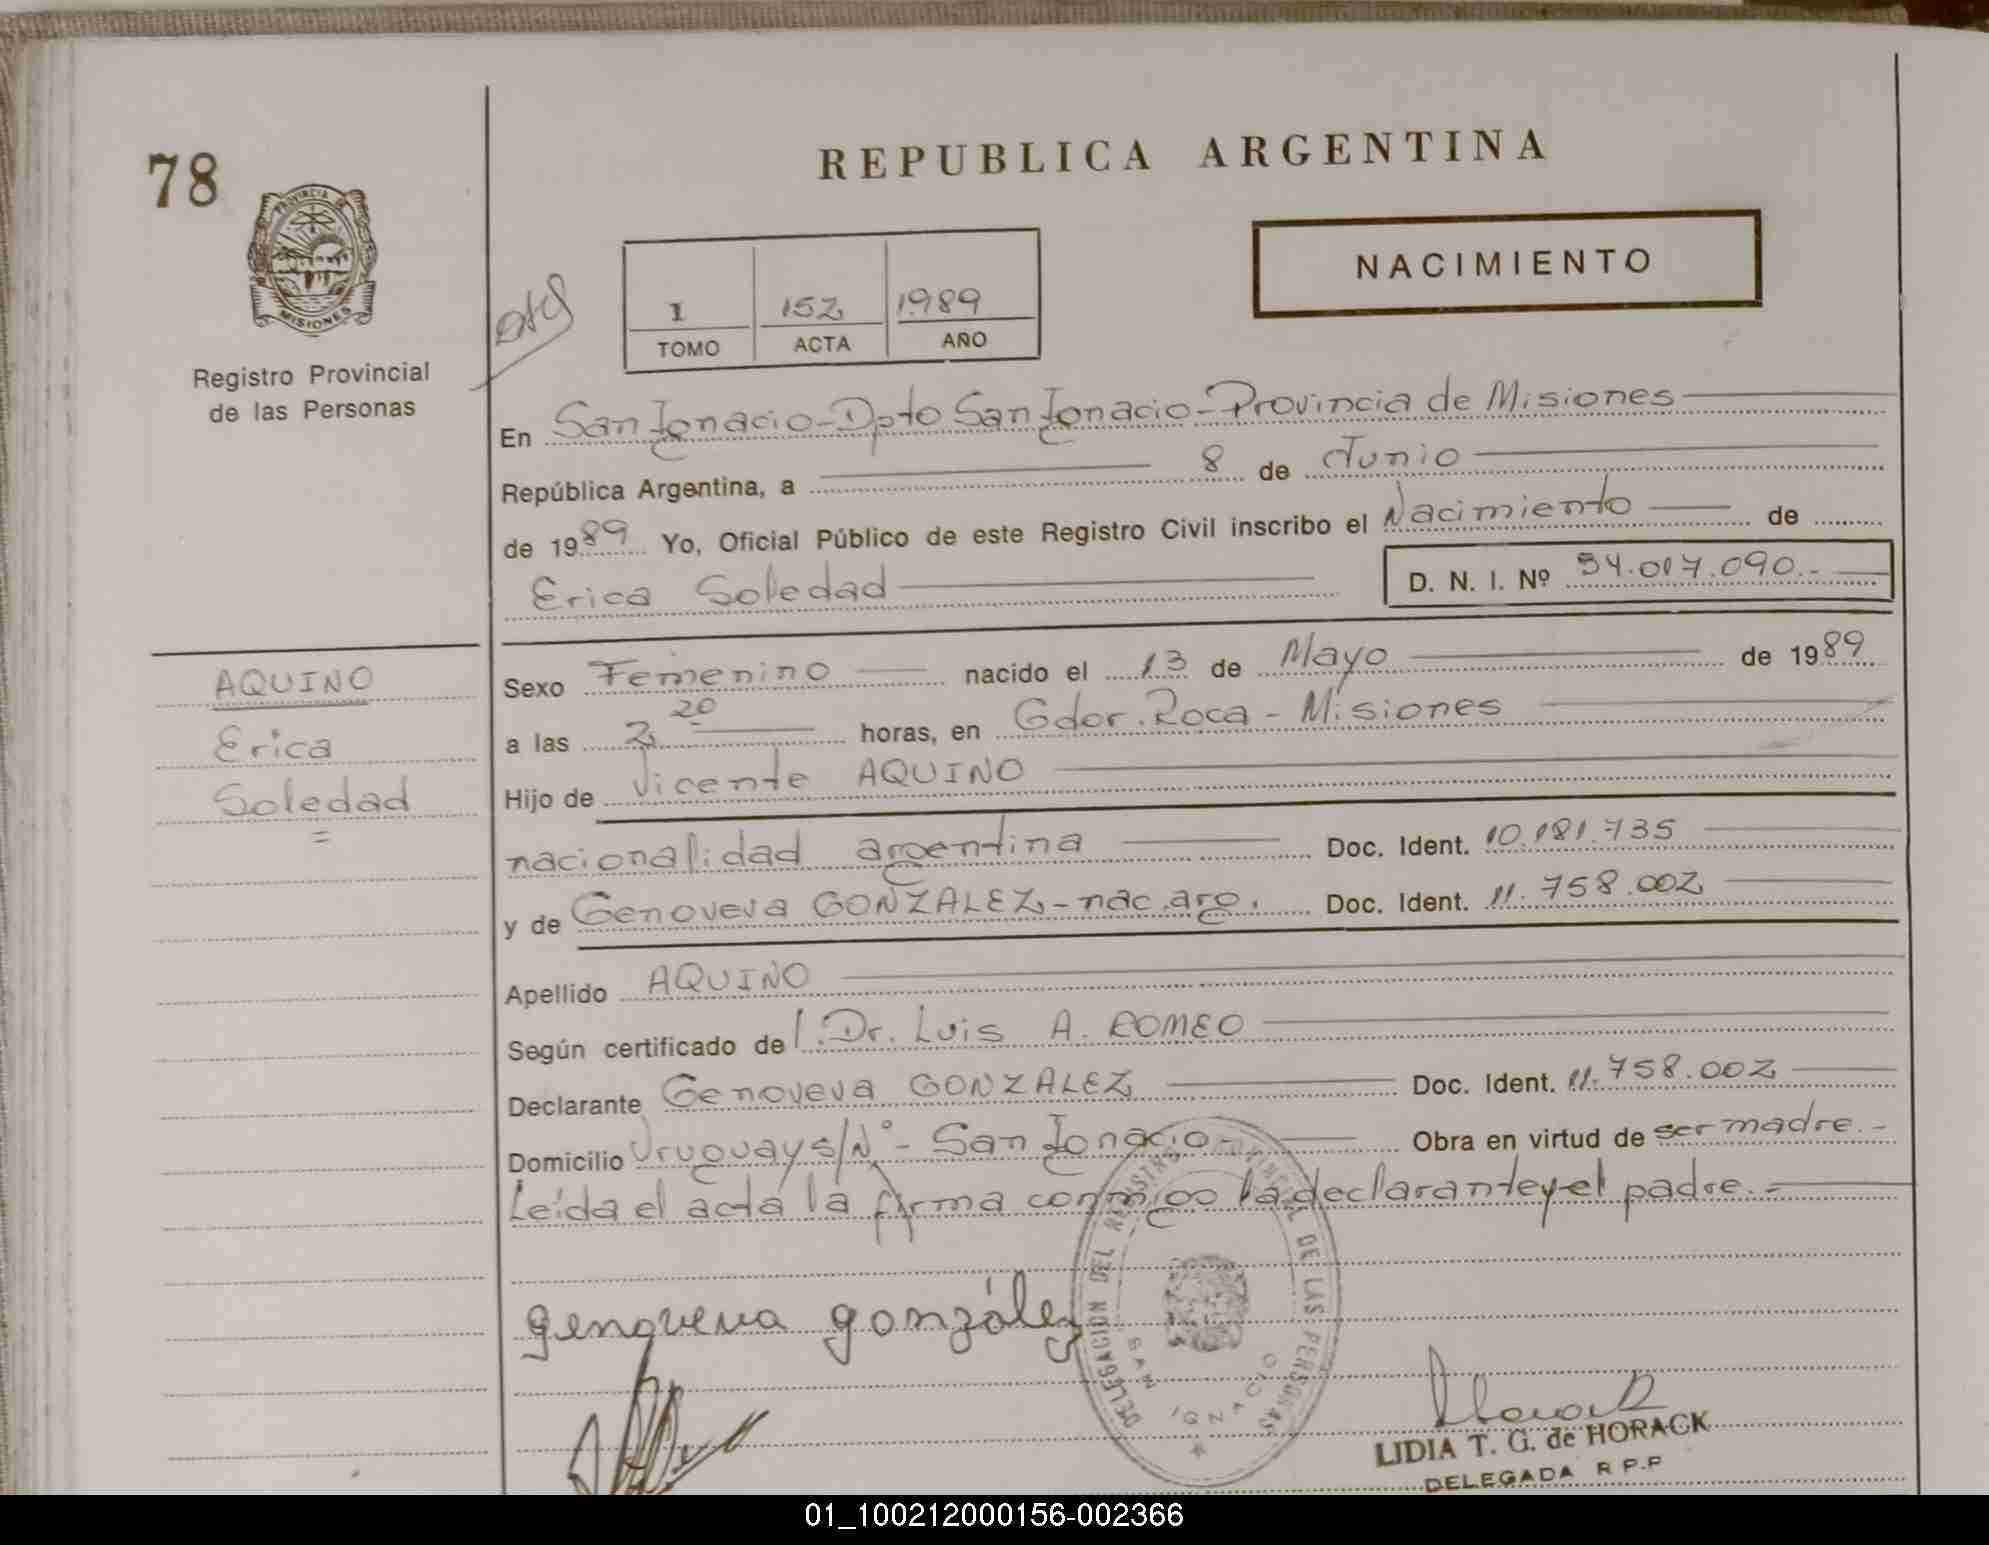 78
REPUBLICA ARGENTINA
PROVINCIA DE
MISIONES
NACIMIENTO
1 152 1989
TOMO ACTA AÑO
Registro Provincial
de las Personas
En San Ignacio - Dpto San Ignacio - Provincia de Misiones
República Argentina, a 8 de Junio
de 1989 Yo, Oficial Público de este Registro Civil inscribo el Nacimiento de
Erica Soledad D. N. I. Nº 34.017.090.-
AQUINO
Erica
Soledad
=
Sexo Femenino nacido el 13 de Mayo de 1989
a las 2 20 horas, en Gdor. Roca - Misiones
Hijo de Vicente AQUINO
nacionalidad argentina Doc. Ident. 10.181.735
y de Genoveva GONZALEZ - nac. arg. Doc. Ident. 11.758.002
Apellido AQUINO
Según certificado del. Dr. Luis A. ROMEO
Declarante Genoveva GONZALEZ Doc. Ident. 11.758.002
Domicilio Uruguay s/Nº - San Ignacio - Obra en virtud de ser madre.-
Leída el acta la firma conmigo la declarante y el padre.-
genoveva gonzález
DELEGACION DEL REGISTRO PROVINCIAL DE LAS PERSONAS
SAN IGNACIO
LIDIA T. G. de HORACK
DELEGADA R P.P
01_100212000156-002366